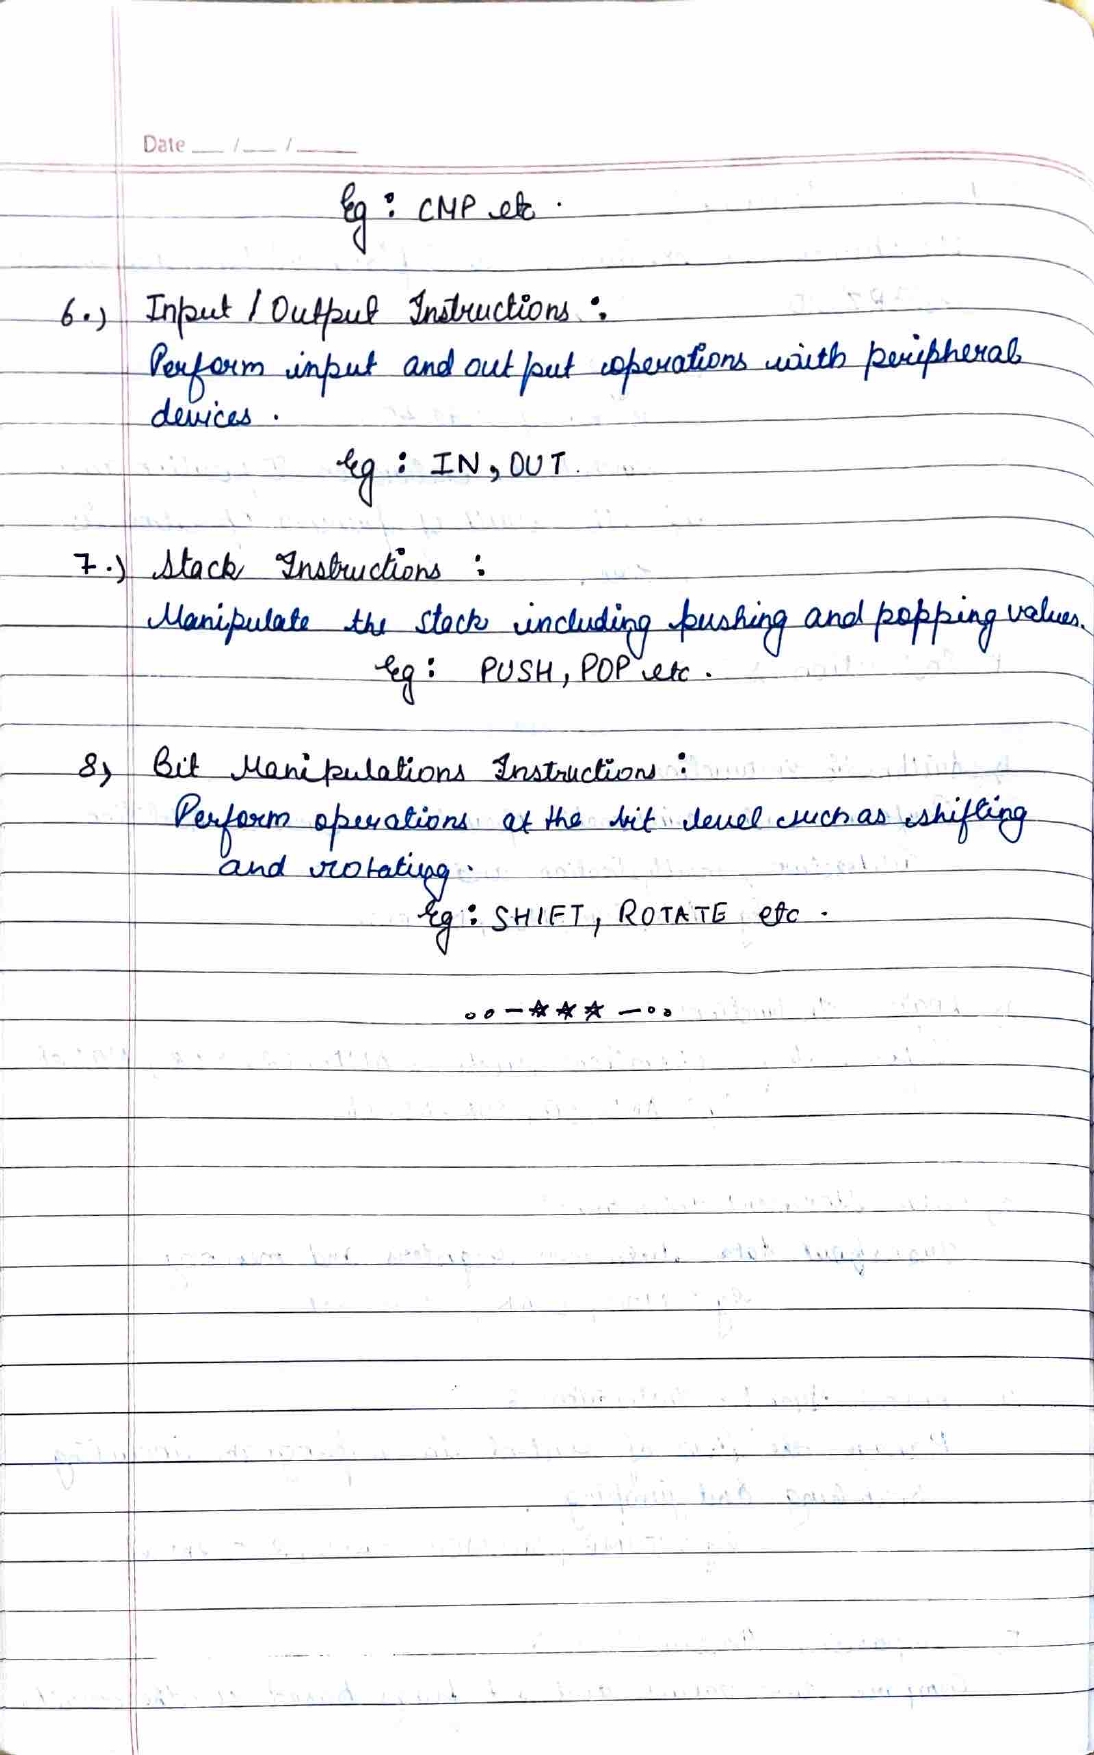 Date __ /__ /____
Eg : CMP etc .
6.) Input / Output Instructions :
Perform input and output operations with peripheral
devices .
eg : IN, OUT.
7.) Stack Instructions :
Manipulate the stack including pushing and popping values.
eg : PUSH, POP etc .
8) Bit Manipulations Instructions :
Perform operations at the bit level such as shifting
and rotating .
Eg : SHIFT, ROTATE etc .